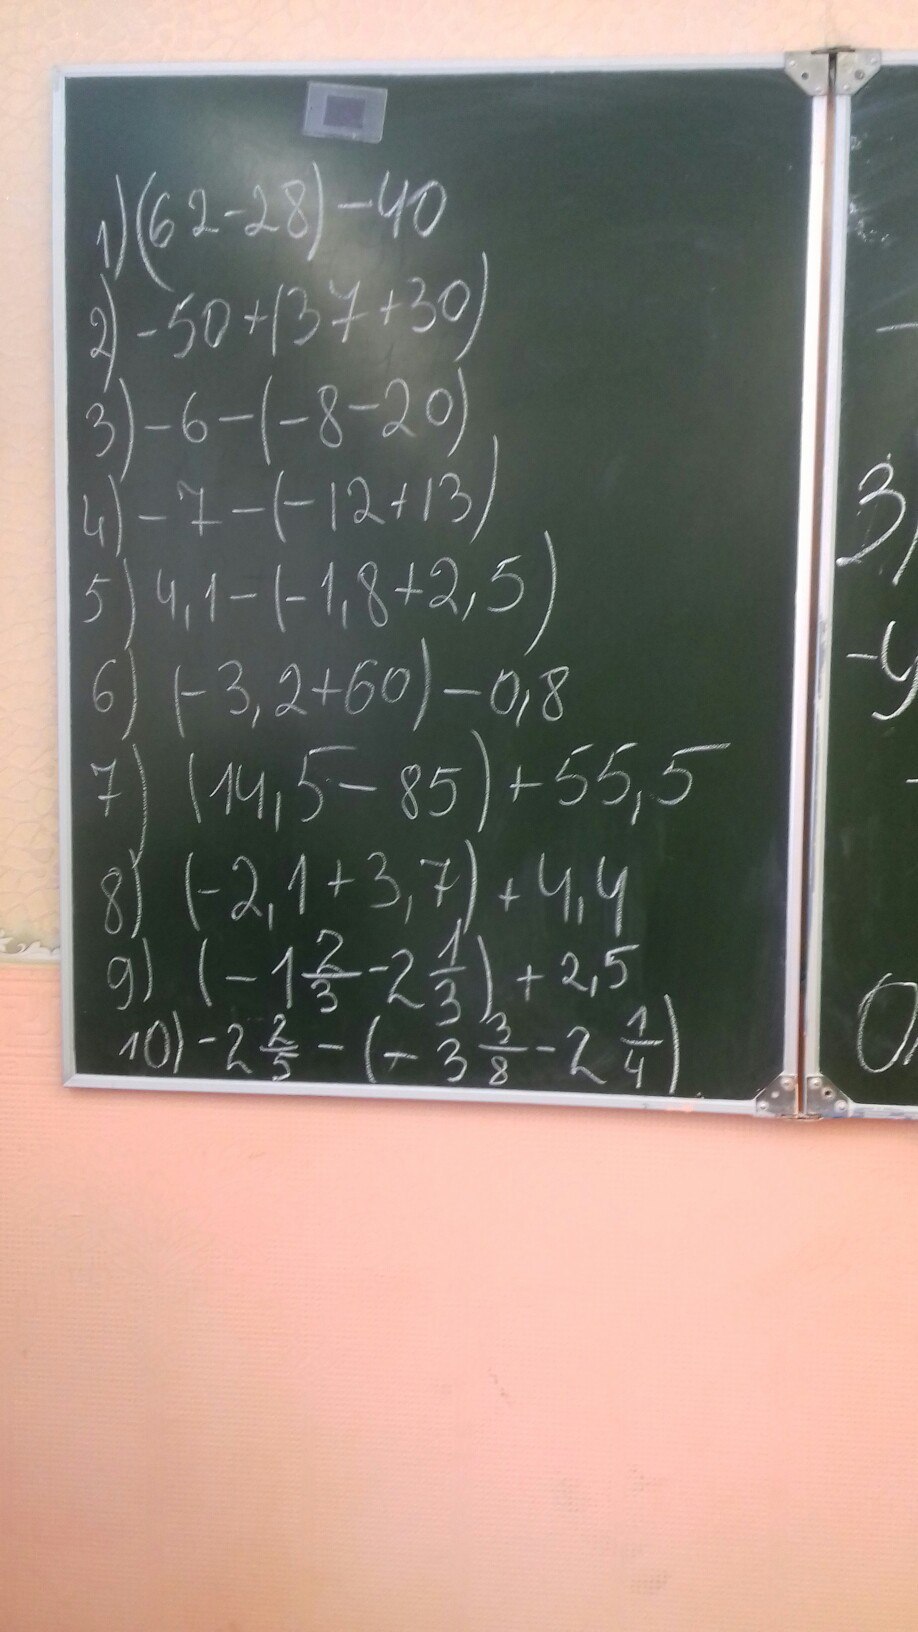 1) (62-28)-40
2) -50+(37+30)
3) -6-(-8-20)
4) -7-(-12+13)
5) 4,1-(-1,8+2,5)
6) (-3,2+60)-0,8
7) (14,5-85)+55,5
8) (-2,1+3,7)+4,4
9) (-1 2/3 - 2 1/3)+2,5
10) -2 2/5 - (-3 3/8 - 2 1/4)